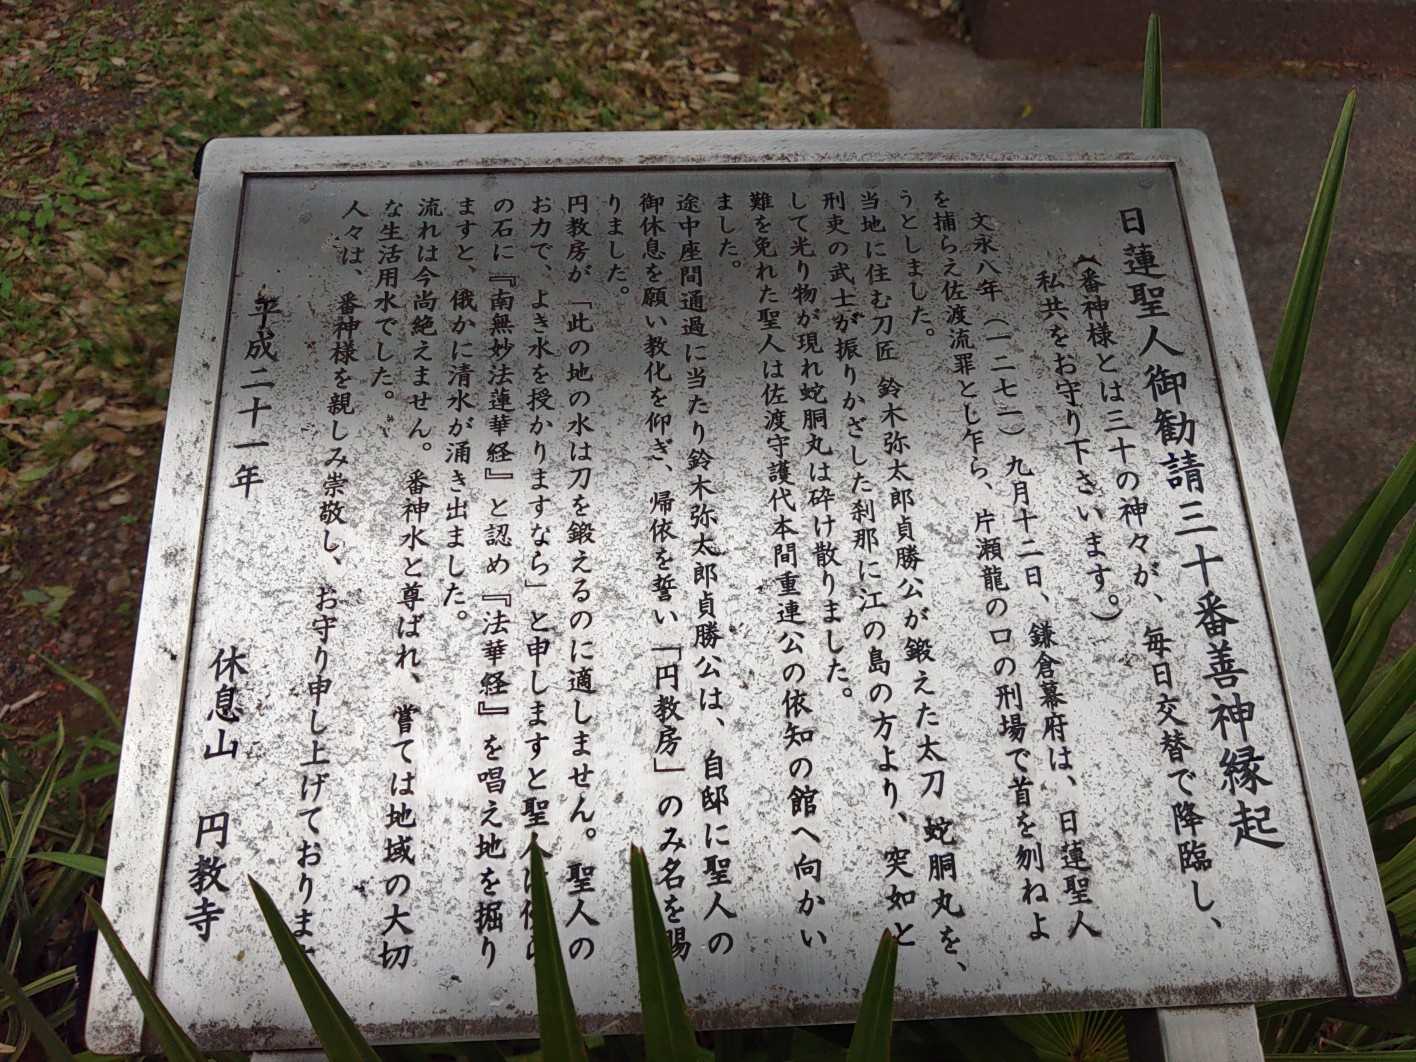 日蓮聖人御勧請三十番善神縁起
（番神様とは三十の神々が、毎日交替で降臨し、
私共をお守り下さいます。）
文永八年（一二七一）九月十二日、鎌倉幕府は、日蓮聖人
を捕らえ佐渡流罪とし乍ら、片瀬龍の口の刑場で首を刎ねよ
うとしました。
当地に住む刀匠 鈴木弥太郎貞勝公が鍛えた太刀 蛇胴丸を、
刑吏の武士が振りかざした刹那に江の島の方より、突如と
して光り物が現れ蛇胴丸は砕け散りました。
難を免れた聖人は佐渡守護代本間重連公の依知の館へ向かい
ました。
途中座間通過に当たり鈴木弥太郎貞勝公は、自邸に聖人の
御休息を願い教化を仰ぎ、帰依を誓い「円教房」のみ名を賜
りました。
円教房が「此の地の水は刀を鍛えるのに適しません。聖人の
お力で、よき水を授かりますなら」と申しますと聖人は傍ら
の石に『南無妙法蓮華経』と認め『法華経』を唱え地を掘り
ますと、俄かに清水が涌き出ました。
流れは今尚絶えません。番神水と尊ばれ、嘗ては地域の大切
な生活用水でした。
人々は、番神様を親しみ崇敬し、お守り申し上げております
平成二十一年 休息山 円教寺